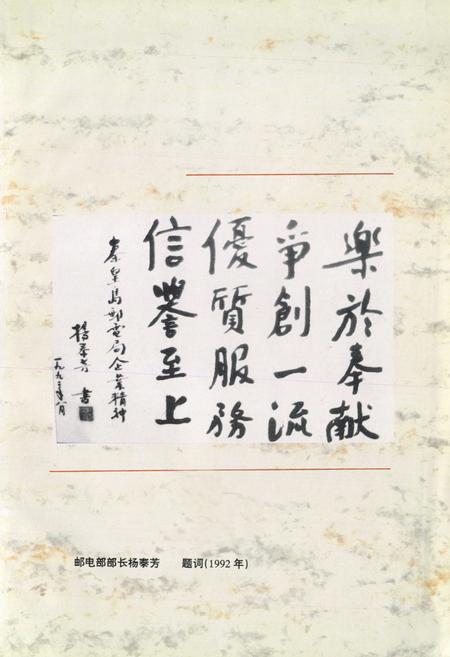 樂於奉献
爭創一流
優質服務
信譽至上
秦皇島郵電局企業精神
楊泰芳 書
一九九二年一月
邮电部部长杨泰芳 题词(1992 年)